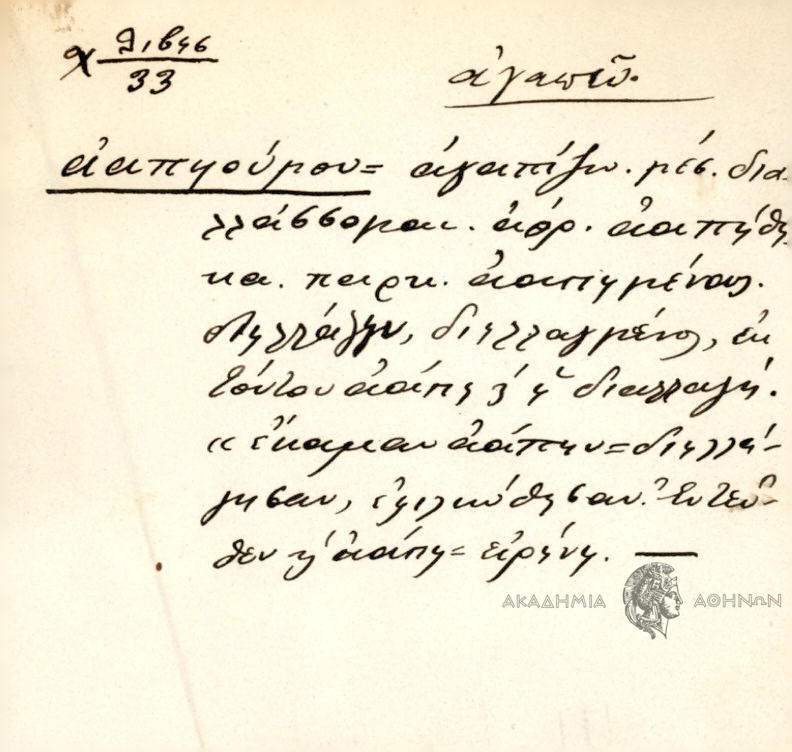 χ Λιβησ
33
ἀγαπῶ.
ἀαπηούμου = ἀγαπίζω. μέσ. δια-
λλάσσομαι. ἀόρ. ἀαπήθη
κα. παρκ. ἀαπημένους.
διηλλάγην, διηλλαγμένος, ἐκ
τούτου ἀάπη ἡ διαλλαγή.
« ἐκαμαν ἀάπην = διηλλά-
γησαν, ἐφιλιώθησαν. Ἐντεῦ-
θεν ἡ ἀάπη = εἰρήνη. —
ΑΚΑΔΗΜΙΑ ΑΘΗΝΩΝ